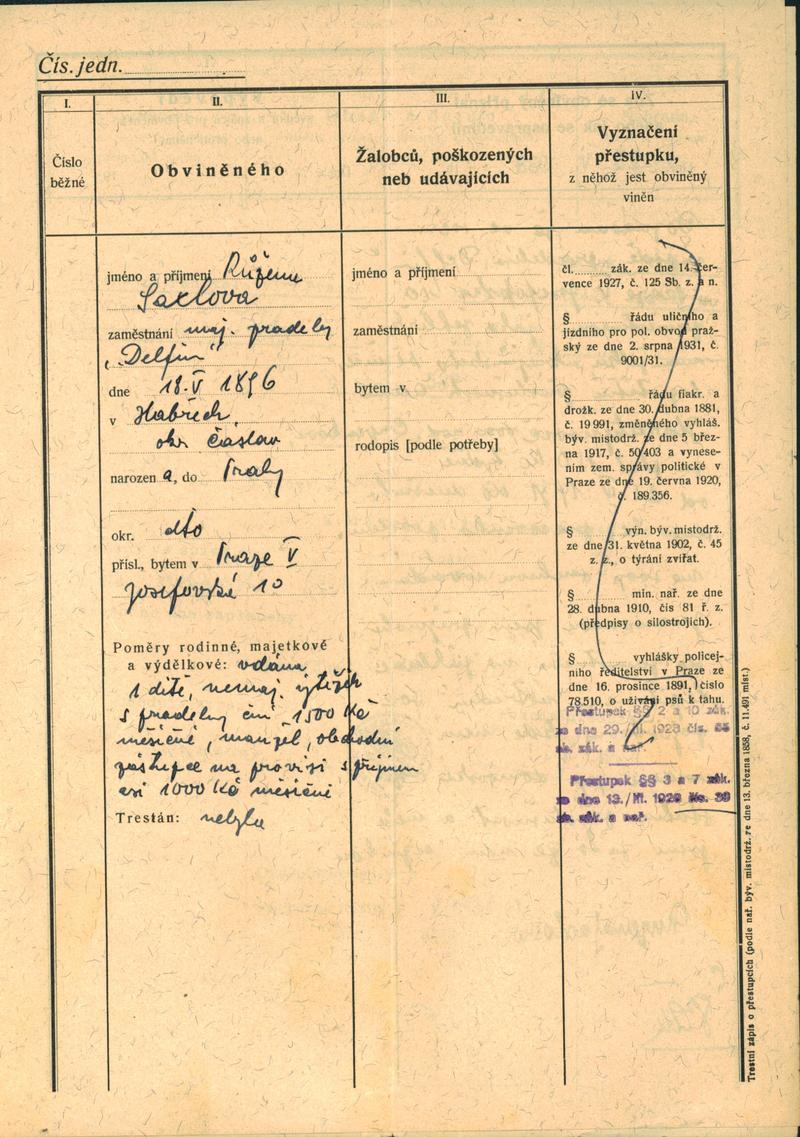 Čís. jedn.
I.
II.
III.
IV.
Číslo
běžné
Obviněného
Žalobců, poškozených
neb udávajících
Vyznačení
přestupku,
z něhož jest obviněný
viněn
jméno a příjmení Růžena
Saxlova
zaměstnání maj. pradelny
„Delfin“
dne 18.V 1896
v Habrech,
okr. Čáslav
narozen a, do Prahy
okr. dto
přísl., bytem v Praze V
Josefovská 10
Poměry rodinné, majetkové
a výdělkové: vdána
1 dítě, nemaj. výtěžek
s pradelny činí 1500 Kč
měsíčně, manžel, obchodní
zástupce na provisi s příjmem
asi 1000 Kč měsíčně
Trestán: nebyla
jméno a příjmení
zaměstnání
bytem v
rodopis [podle potřeby]
čl. zák. ze dne 14. čer-
vence 1927, č. 125 Sb. z. a n.
§ řádu uličního a
jízdního pro pol. obvod praž-
ský ze dne 2. srpna 1931, č.
9001/31.
§ řádu fiakr. a
drožk. ze dne 30. dubna 1881,
č. 19 991, změněného vyhláš.
býv. místodrž. ze dne 5 břez-
na 1917, č. 50 403 a vynese-
ním zem. správy politické v
Praze ze dne 19. června 1920,
č. 189.356.
§ výn. býv. místodrž.
ze dne 31. května 1902, č. 45
z. z., o týrání zvířat.
§ min. nař. ze dne
28. dubna 1910, čís 81 ř. z.
(předpisy o silostrojích).
§ vyhlášky policej-
ního ředitelství v Praze ze
dne 16. prosince 1891, číslo
78.510, o užívání psů k tahu.
Přestupek §§ 2 a 10 zák.
ze dne 29./III. 1928 čís. 55
sb. zák. a nař.
Přestupek §§ 3 a 7 zák.
ze dne 13./III. 1929 No. 39
sb. zák. a nař.
Trestní zápis o přestupcích (podle nař. býv. místodrž. ze dne 13. března 1858, č. 11.491 míst.)